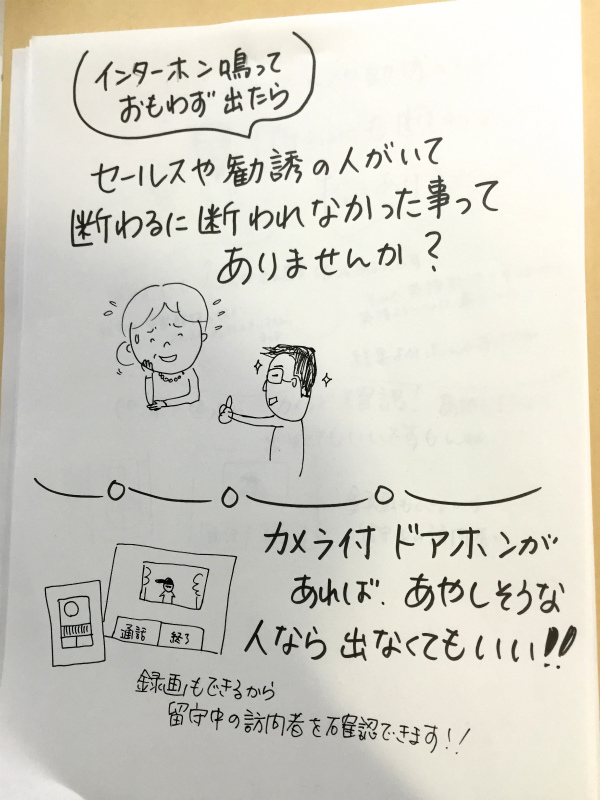 インターホン鳴って
おもわず出たら
セールスや勧誘の人がいて
断わるに断われなかった事って
ありませんか？
カメラ付ドアホンが
あれば、あやしそうな
人なら出なくてもいい!!
通話 終了
録画もできるから
留守中の訪問者を確認できます!!